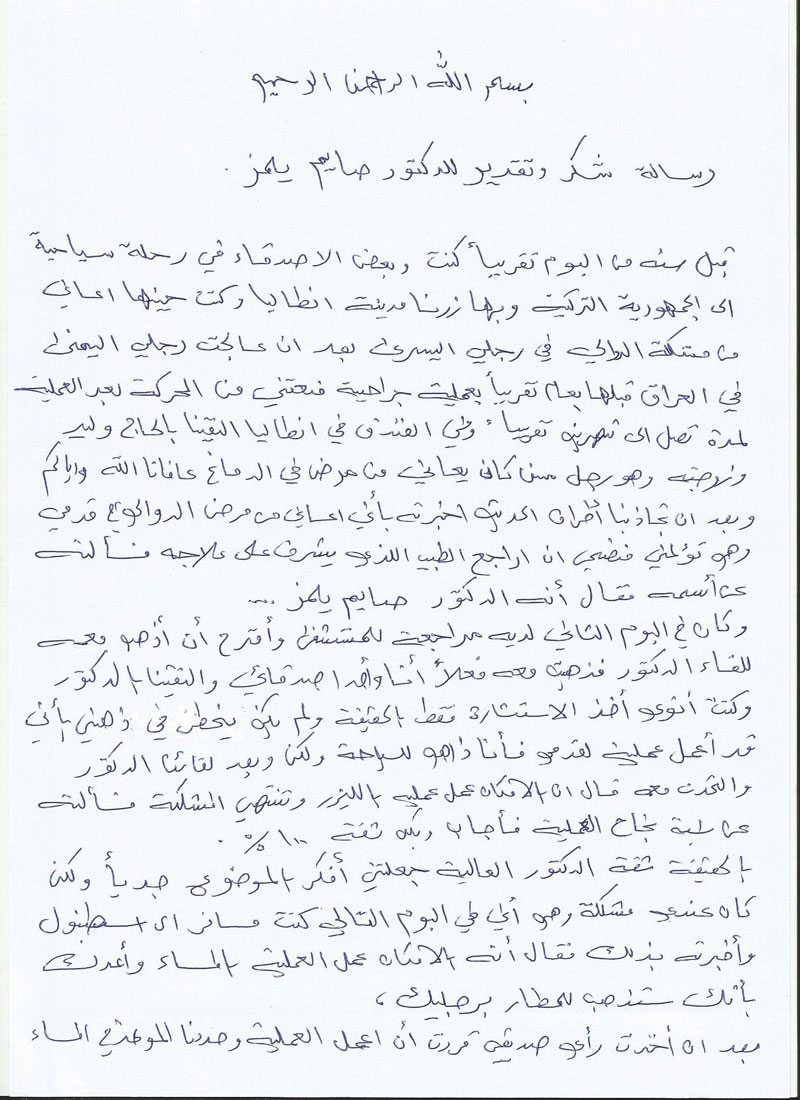 بسم الله الرحمن الرحيم
رسالة شكر وتقدير للدكتور صايم يلمز .
قبل سنه من اليوم تقريباً كنت وبعض الاصدقاء في رحلة سياحية
الى الجمهورية التركية وبها زرنا مدينة انطاليا وكنت حينها اعاني
من مشكلة الدوالي في رجلي اليسرى بعد ان عالجت رجلي اليمنى
في العراق قبلها بعام تقريباً بعملية جراحية منعتني من الحركة بعد العملية
لمدة تصل الى شهرين تقريباً وفي الفندق في انطاليا التقينا بالحاج وليد
وزوجته وهو رجل مسن كان يعاني من مرض في الدماغ عافانا الله واياكم
وبعد ان تجاذبنا اطراف الحديث اخبرته بأني اعاني من مرض الدوالي في قدمي
وهو تؤلمني فنصحني ان اراجع الطبيب اللذي يشرف على علاجه فسألته
عن أسمه فقال أنه الدكتور صايم يلمز ....
وكان في اليوم الثاني لديه مراجعة للمستشفى وأقترح أن أذهب معه
للقاء الدكتور فذهبت معه فعلاً أنا وأحد اصدقائي والتقينا بالدكتور
وكنت أنوي أخذ الاستشارة فقط بالحقيقة ولم يكن يخطر في ذهني بأني
قد أعمل عملية لقدمي فأنا ذاهب للسياحة ولكن وبعد لقائنا الدكتور
والتحدث معه قال ان بالامكان عمل عملية بالليزر وتنتهي المشكلة فسألته
عن نسبة نجاح العملية فأجاب وبكل ثقة ١٠٠ % .
بالحقيقة ثقة الدكتور العالية جعلتني أفكر بالموضوع جدياً ولكن
كان عندي مشكلة وهو أني في اليوم التالي كنت مسافر الى اسطنبول
وأخبرته بذلك فقال أنه بالامكان عمل العملية بالمساء وأعدك
بأنك ستذهب للمطار برجليك ،
بعد ان أخذت رأي صديقي قررت أن اعمل العملية وحددنا الموعد في المساء